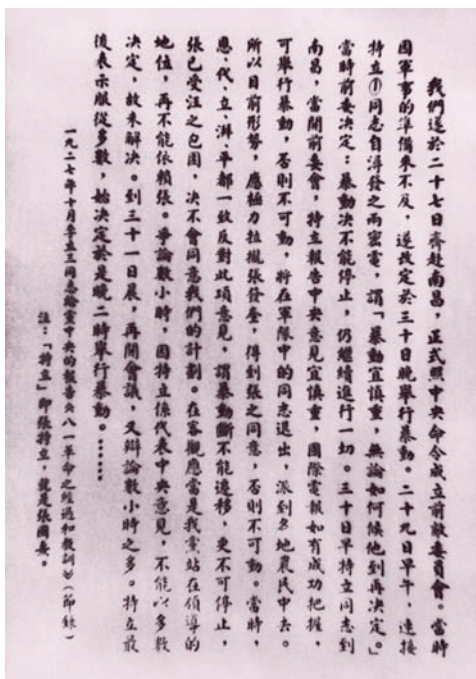 我們遂於二十七日齊赴南昌，正式照中央命令成立前敵委員會。當時
因軍事的準備來不及，遂改定於三十日晚舉行暴動。二十九日早午，連接
特立①同志自潯發之兩密電，謂「暴動宜慎重，無論如何候他到再决定。」
當時前委决定：暴動决不能停止，仍繼續進行一切。三十日早特立同志到
南昌，當開前委會，特立報告中央意見宜慎重，國際電報如有成功把握，
可舉行暴動，否則不可動，將在軍隊中的同志退出，派到各地農民中去。
所以目前形勢，應極力拉攏張發奎，得到張之同意，否則不可動。當時，
恩、代、立、湃、平都一致反對此項意見，謂暴動斷不能遷移，更不可停止，
張已受汪之包圍，决不會同意我們的計劃。在客觀應當是我黨站在領導的
地位，再不能依賴張。爭論數小時，因特立係代表中央意見，不能以多數
决定，故未解决。到三十一日晨，再開會議，又辯論數小時之多。特立最
後表示服從多數，始决定於是晚二時舉行暴動。……
一九二七年十月李立三同志給黨中央的報告《八一革命之經過和教訓》（節錄）
注：「特立」即張特立，就是張國燾。